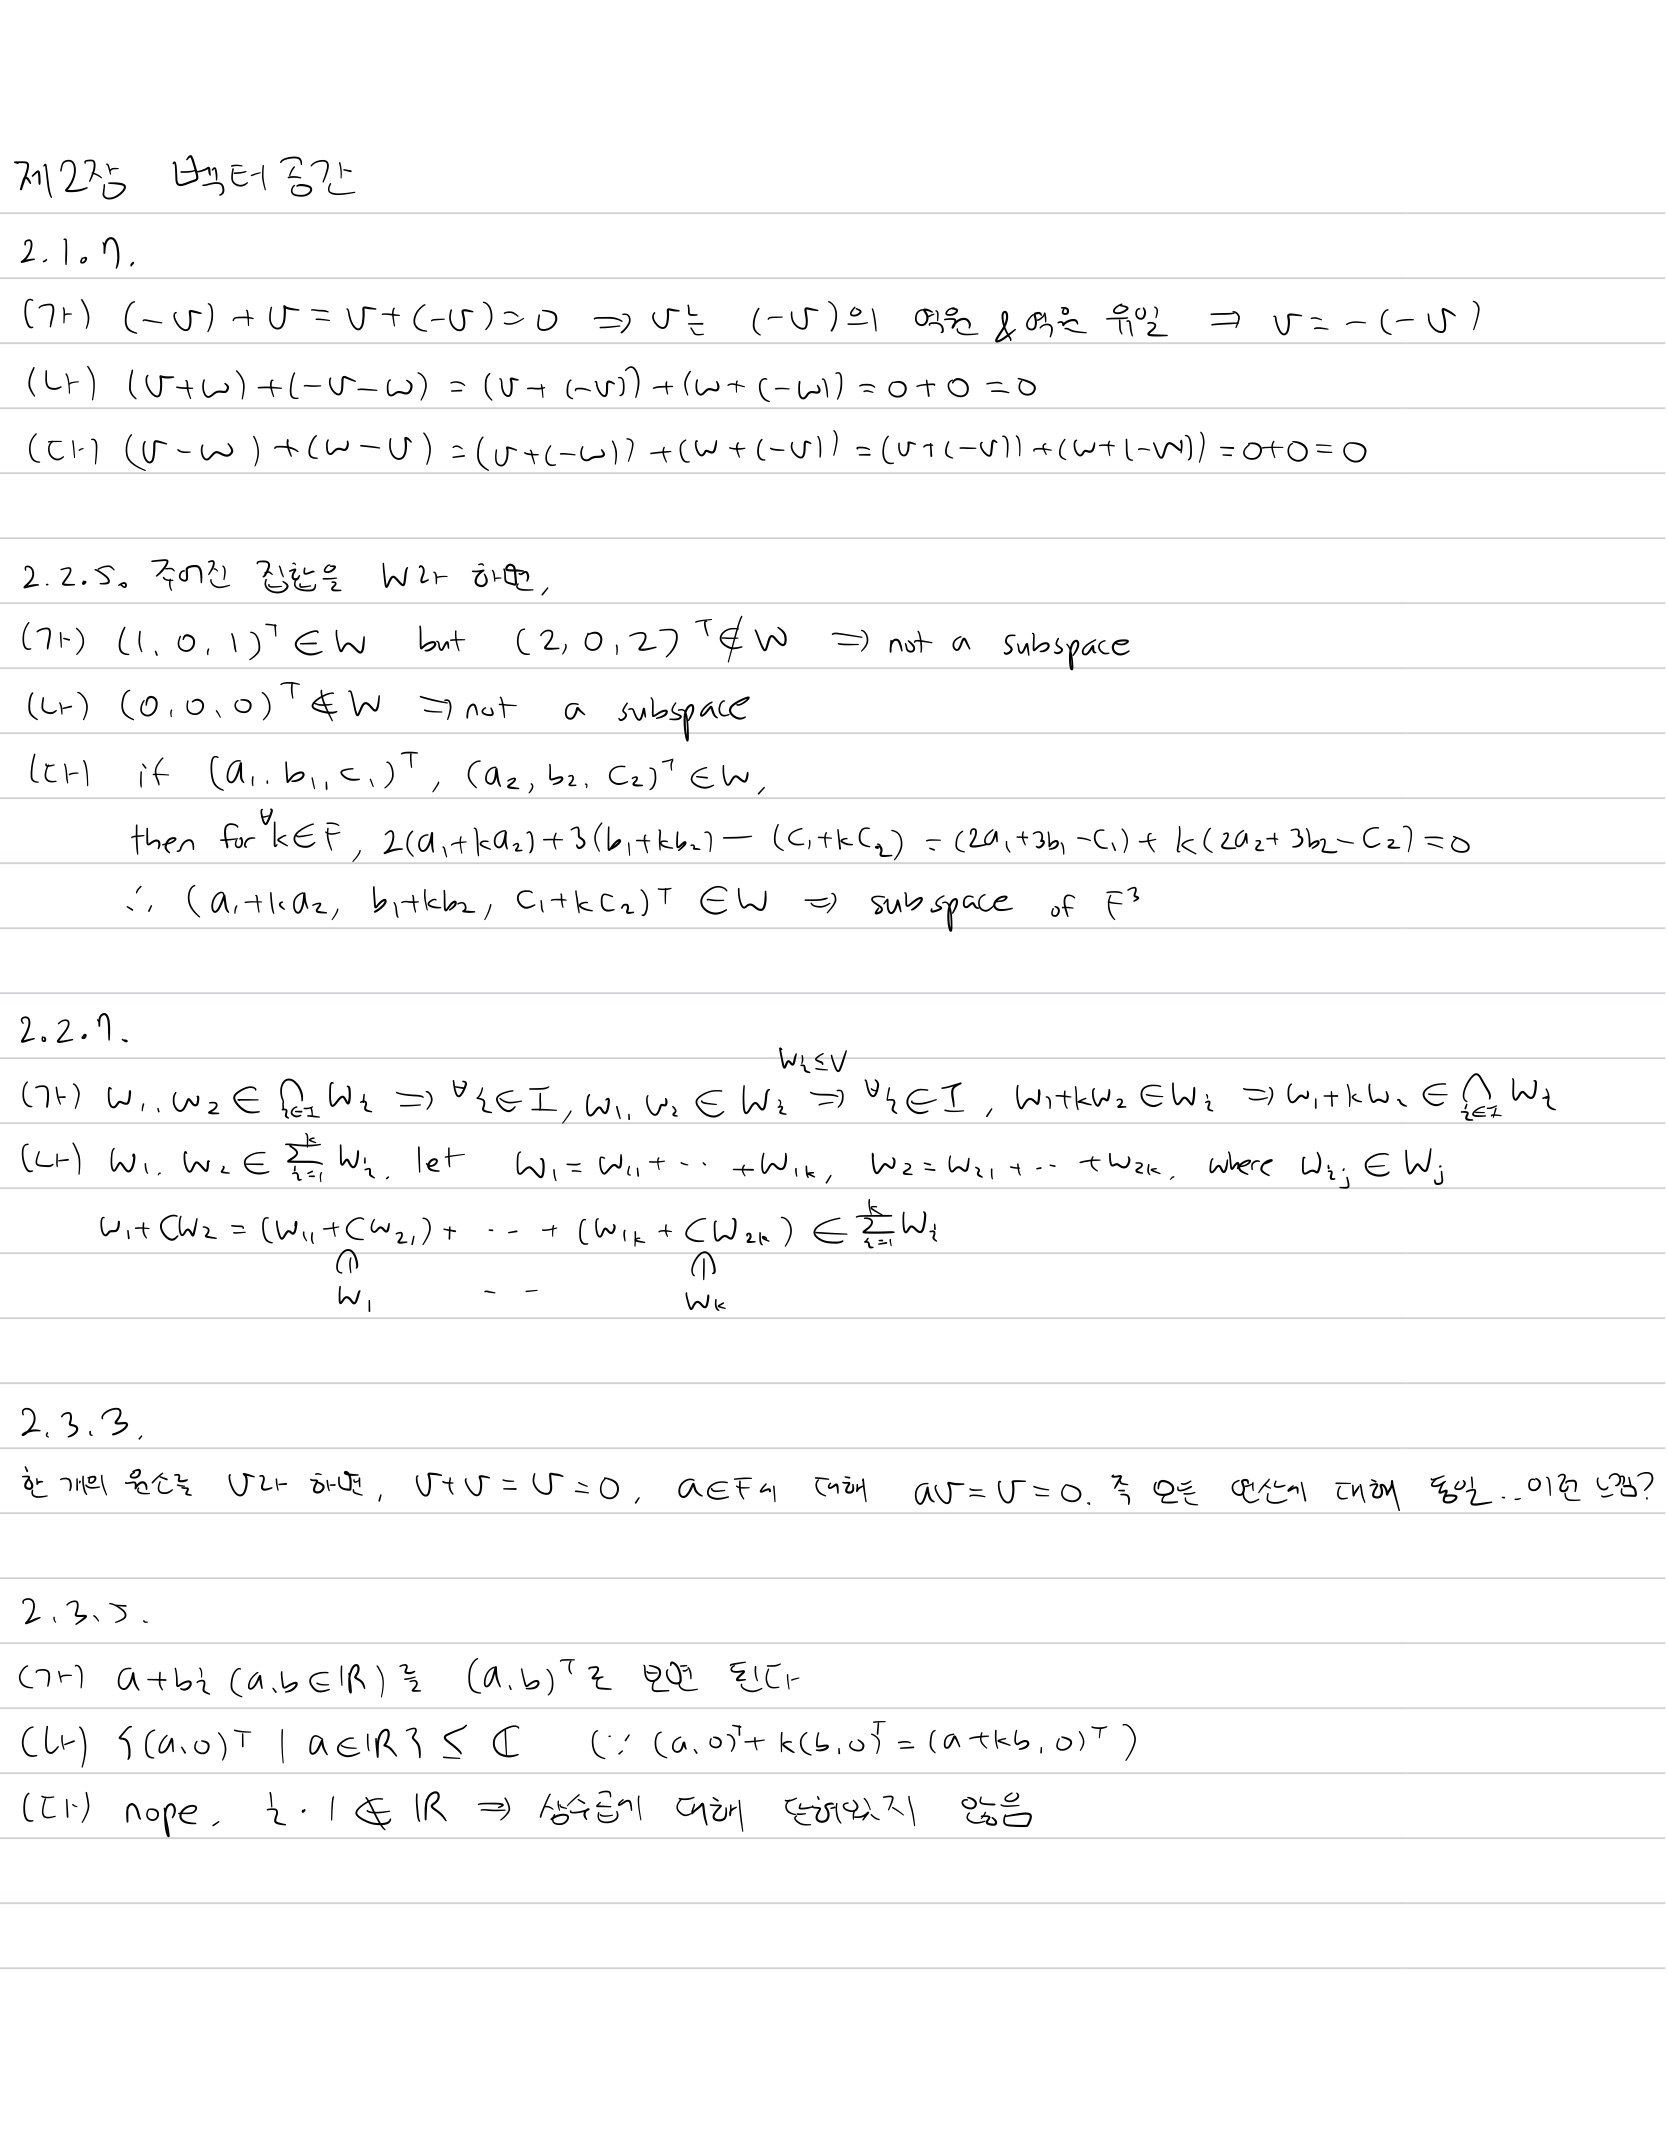 제2장 벡터공간
2.1.7.
(가) (-v)+v=v+(-v)=0 ⇒ v는 (-v)의 역원 & 역원 유일 ⇒ v=-(-v)
(나) (v+w)+(-v-w)=(v+(-v))+(w+(-w))=0+0=0
(다) (v-w)+(w-v)=(v+(-w))+(w+(-v))=(v+(-v))+(w+(-w))=0+0=0
2.2.5. 주어진 집합을 W라 하면,
(가) (1,0,1)ᵀ∈W but (2,0,2)ᵀ∉W ⇒ not a subspace
(나) (0,0,0)ᵀ∉W ⇒ not a subspace
(다) if (a₁,b₁,c₁)ᵀ, (a₂,b₂,c₂)ᵀ∈W,
then for ∀k∈F, 2(a₁+ka₂)+3(b₁+kb₂)-(c₁+kc₂)=(2a₁+3b₁-c₁)+k(2a₂+3b₂-c₂)=0
∴ (a₁+ka₂, b₁+kb₂, c₁+kc₂)ᵀ∈W ⇒ subspace of F³
2.2.7.
Wᵢ≤V
(가) w₁,w₂∈⋂_{i∈I}Wᵢ ⇒ ∀i∈I, w₁,w₂∈Wᵢ ⇒ ∀i∈I, w₁+kw₂∈Wᵢ ⇒ w₁+kw₂∈⋂_{i∈I}Wᵢ
(나) w₁,w₂∈∑_{i=1}^{k}Wᵢ, let w₁=w₁₁+··+w₁ₖ, w₂=w₂₁+··+w₂ₖ, where wᵢⱼ∈Wⱼ
w₁+cw₂=(w₁₁+cw₂₁)+··+(w₁ₖ+cw₂ₖ)∈∑_{i=1}^{k}Wᵢ
W₁ -- Wₖ
2.3.3.
한 개의 원소를 v라 하면, v+v=v=0, a∈F에 대해 av=v=0. 즉 모든 연산에 대해 동일..이런 느낌?
2.3.5.
(가) a+bi (a,b∈ℝ)를 (a,b)ᵀ로 보면 된다
(나) {(a,0)ᵀ | a∈ℝ}≤ℂ (∵ (a,0)ᵀ+k(b,0)ᵀ=(a+kb,0)ᵀ)
(다) nope, i·1∉ℝ ⇒ 상수곱에 대해 닫혀있지 않음